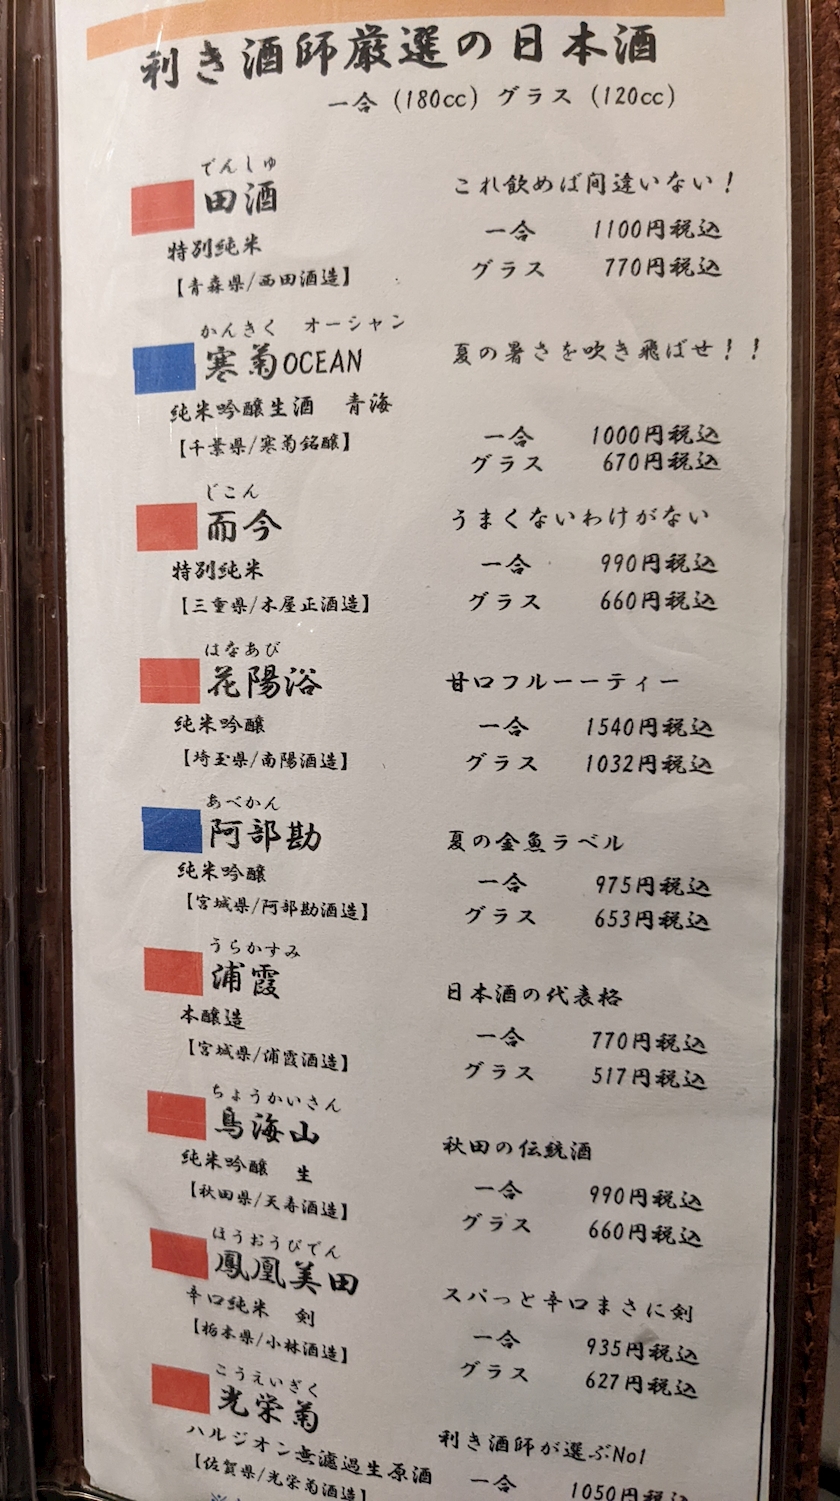 利き酒師厳選の日本酒
一合 (180cc) グラス (120cc)
でんしゅ
田酒 これ飲めば間違いない!
特別純米 一合 1100円税込
【青森県/西田酒造】 グラス 770円税込
かんきく オーシャン
寒菊OCEAN 夏の暑さを吹き飛ばせ!!
純米吟醸生酒 青海
【千葉県/寒菊銘醸】 一合 1000円税込
グラス 670円税込
じこん
而今 うまくないわけがない
特別純米 一合 990円税込
【三重県/木屋正酒造】 グラス 660円税込
はなあび
花陽浴 甘口フルーーティー
純米吟醸 一合 1540円税込
【埼玉県/南陽酒造】 グラス 1032円税込
あべかん
阿部勘 夏の金魚ラベル
純米吟醸 一合 975円税込
【宮城県/阿部勘酒造】 グラス 653円税込
うらかすみ
浦霞 日本酒の代表格
本醸造 一合 770円税込
【宮城県/浦霞酒造】 グラス 517円税込
ちょうかいさん
鳥海山 秋田の伝統酒
純米吟醸 生 一合 990円税込
【秋田県/天寿酒造】 グラス 660円税込
ほうおうびでん
鳳凰美田 スパっと辛口まさに剣
辛口純米 剣 一合 935円税込
【栃木県/小林酒造】 グラス 627円税込
こうえいぎく
光栄菊 利き酒師が選ぶNo1
ハルジオン無濾過生原酒 一合 1050円税込
【佐賀県/光栄菊酒造】